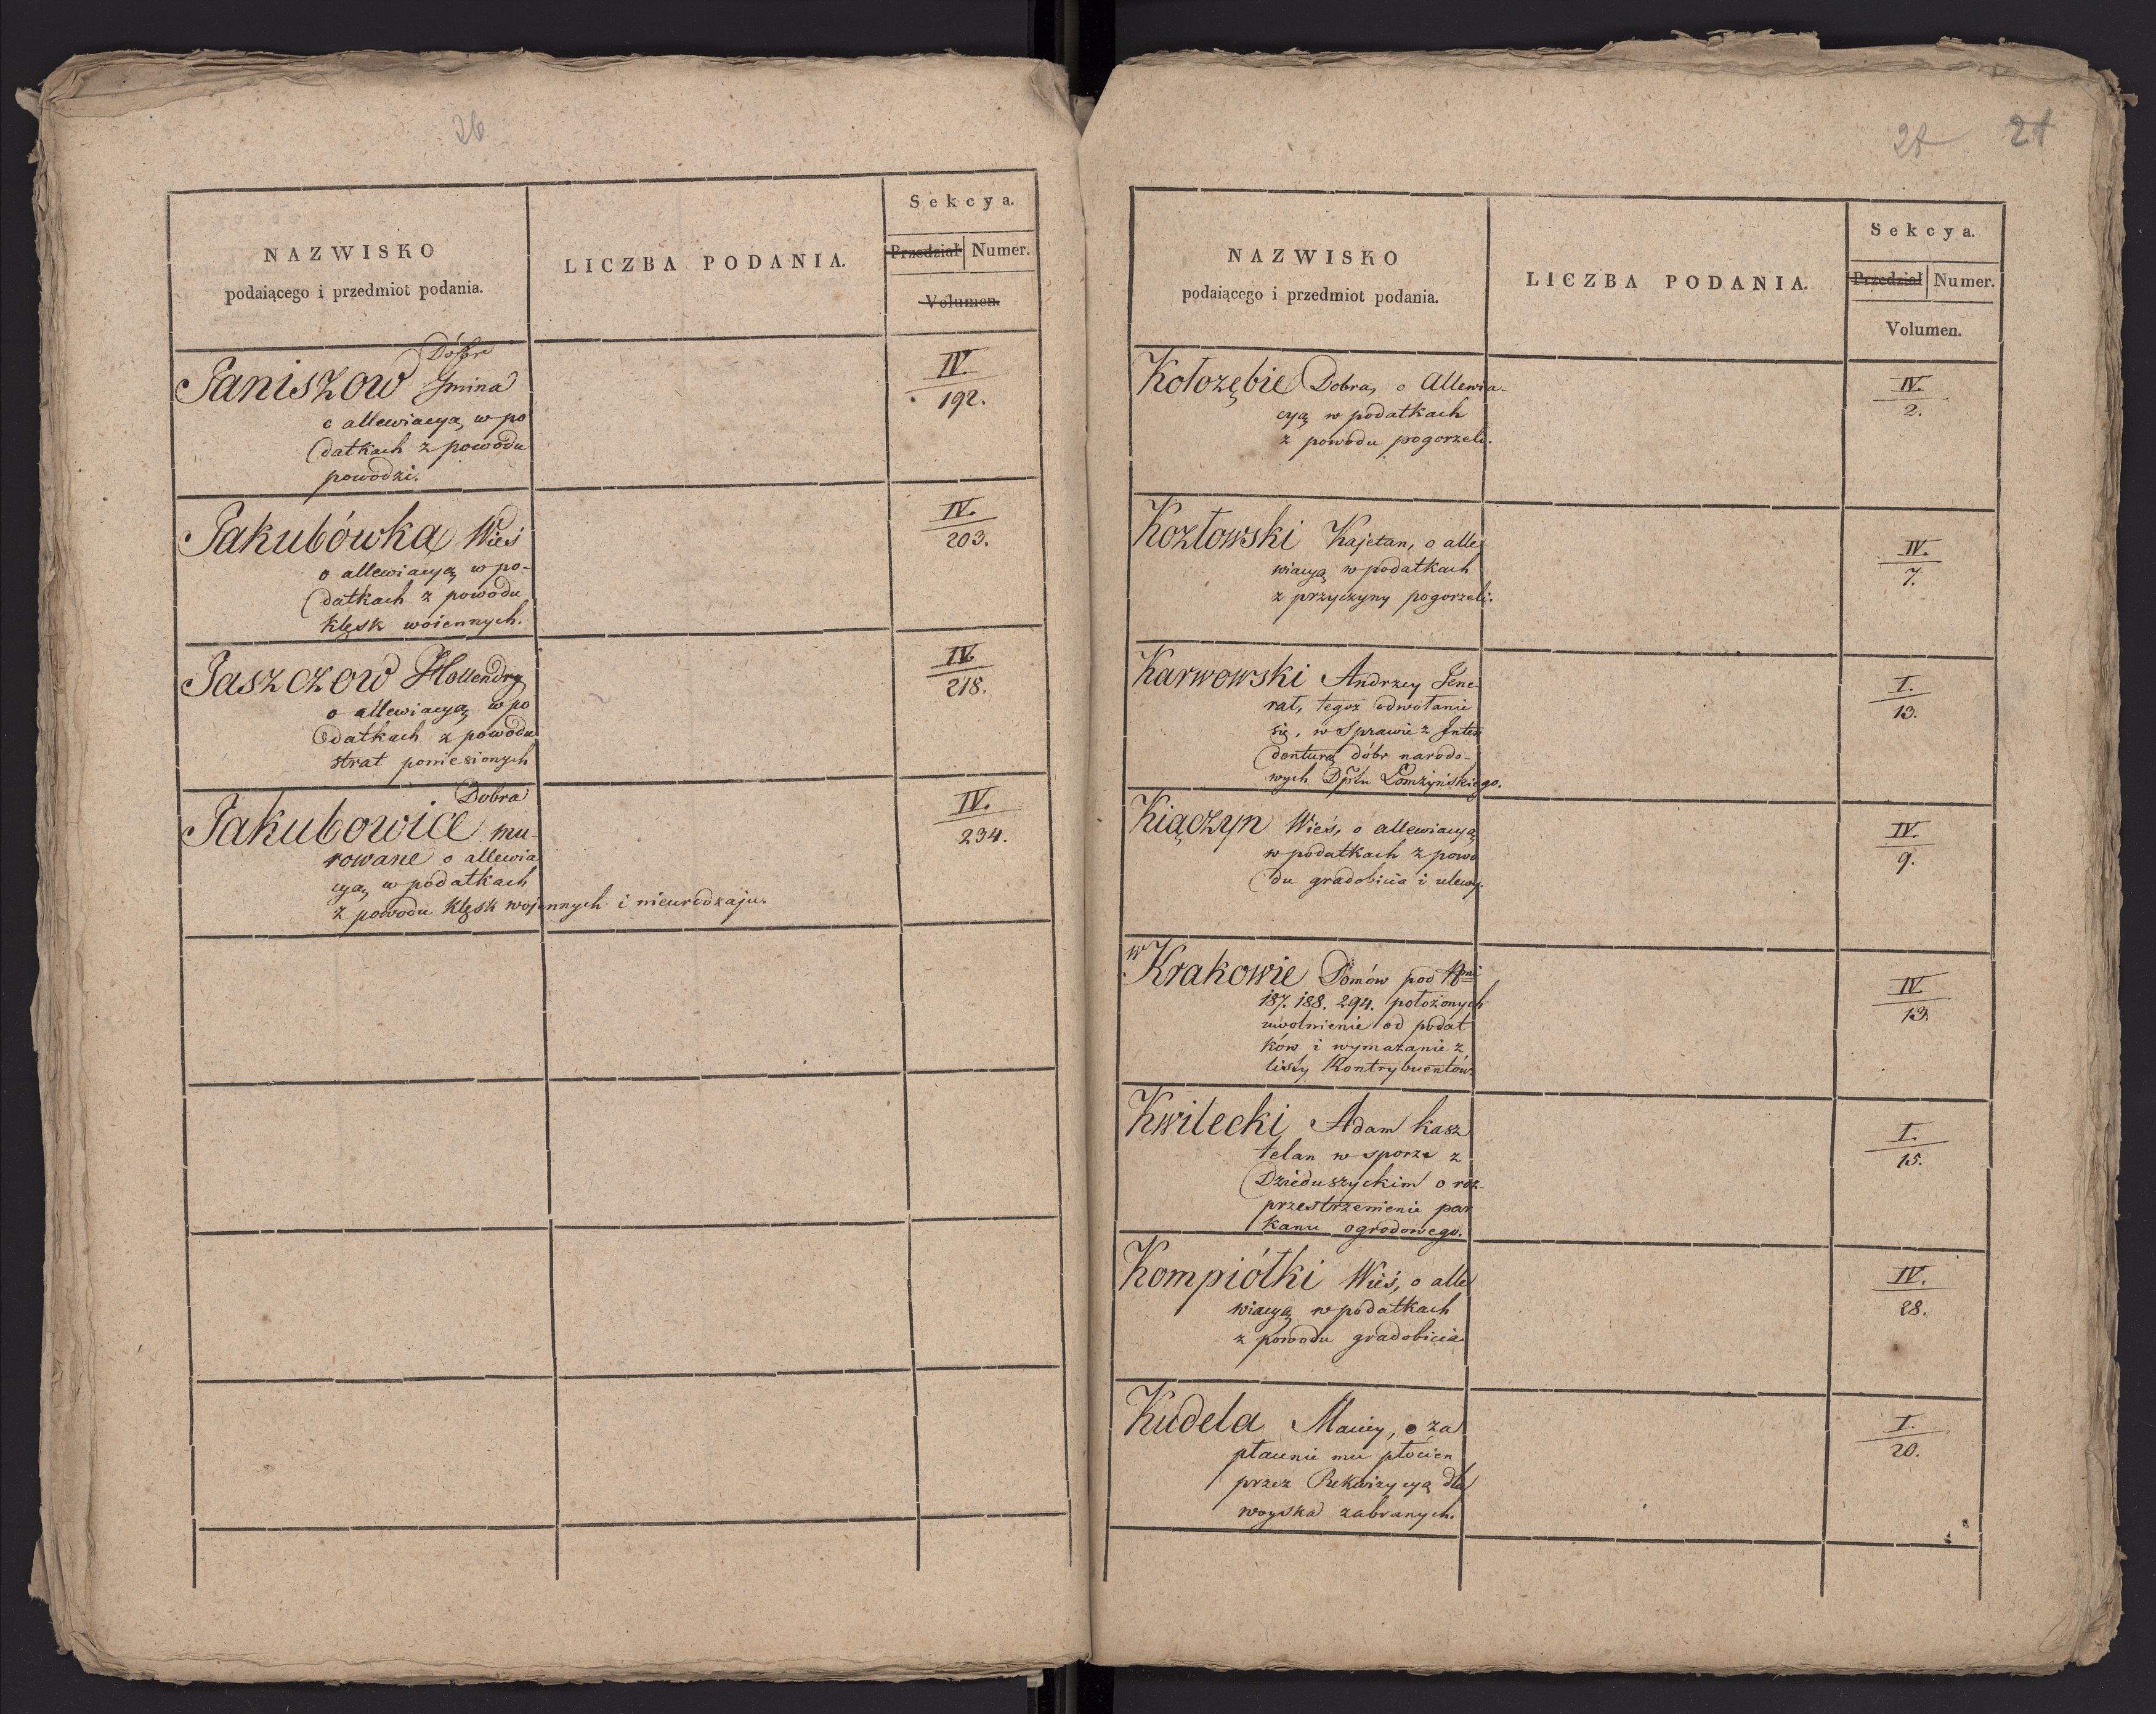 26
NAZWISKO
podaiącego i przedmiot podania.
LICZBA PODANIA.
Sekcya.
Przedział Numer.
Volumen.
Dóbr
Janiszow Gmina
o allewiacyą w po
datkach z powodu
powodzi.
IV.
192.
Jakubówka Wieś
o allewiacyą w po-
datkach z powodu
klęsk woiennych.
IV.
203.
Jaszczow Hollendry
o allewiacyą w po
datkach z powodu
strat poniesionych
IV.
218.
Dobra
Jakubowice mu-
rowane o allewia
cyą w podatkach
z powodu klęsk wojennych i nieurodzaju.
IV.
234.
27 21
NAZWISKO
podaiącego i przedmiot podania.
LICZBA PODANIA.
Sekcya.
Przedział Numer.
Volumen.
Kołozębie Dobra, o Allewia-
cyą w podatkach
z powodu pogorzeli.
IV.
2.
Kozłowski Kajetan, o alle
wiacyą w podatkach
z przyczyny pogorzeli.
IV.
7.
Karwowski Andrzey Gene-
rał, tegoż odwołanie
się, w Sprawie z Inten
denturą dóbr narodo-
wych Dptu Łomżyńskiego.
I.
13.
Kiączyn Wieś, o allewiacyą
w podatkach z powo
du gradobicia i ulewy.
IV.
9.
w Krakowie Domów pod Nmi
187. 188. 294. położonych
uwolnienie od podat
ków i wymazanie z
listy Kontrybuentów.
IV.
13.
Kwilecki Adam kasz
telan w sporze z
Dzieduszyckim o roz-
przestrzenienie par
kanu ogrodowego.
I.
15.
Kompiółki Wieś, o alle
wiacyą w podatkach
z powodu gradobicia
IV.
28.
Kudela Maciey, o za
płacenie mu płócien
przez Rekwizycyą dla
woyska zabranych.
I.
20.